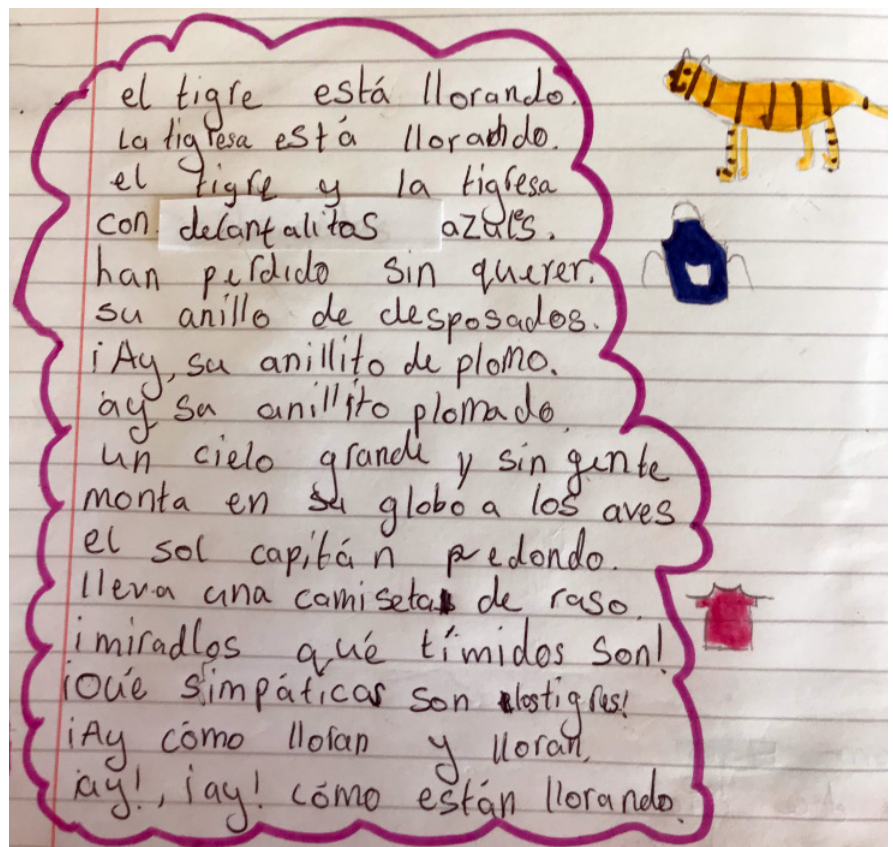 el tigre está llorando.
La tigresa está llorando.
el tigre y la tigresa
con delantalitas azules.
han perdido sin querer.
su anillo de desposados.
¡Ay, su anillito de plomo.
ay su anillito plomado
un cielo grande y sin gente
monta en su globo a los aves
el sol capitán redondo.
lleva una camiseta de raso.
¡miradlos qué tímidos son!
¡Qué simpáticos son los tigres!
¡Ay cómo lloran y lloran,
¡ay!, ¡ay! cómo están llorando.